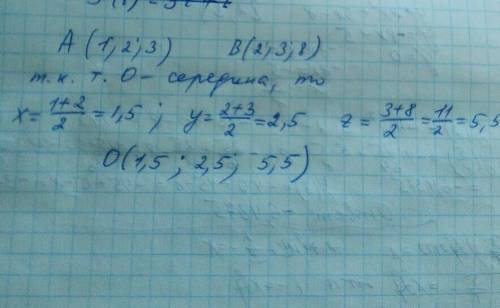 A (1; 2; 3) B(2; 3; 8)
т.к. т. О - середина, то
x = \frac{1+2}{2} = 1,5 ; y = \frac{2+3}{2} = 2,5 z = \frac{3+8}{2} = \frac{11}{2} = 5,5
O(1,5 ; 2,5; 5,5)